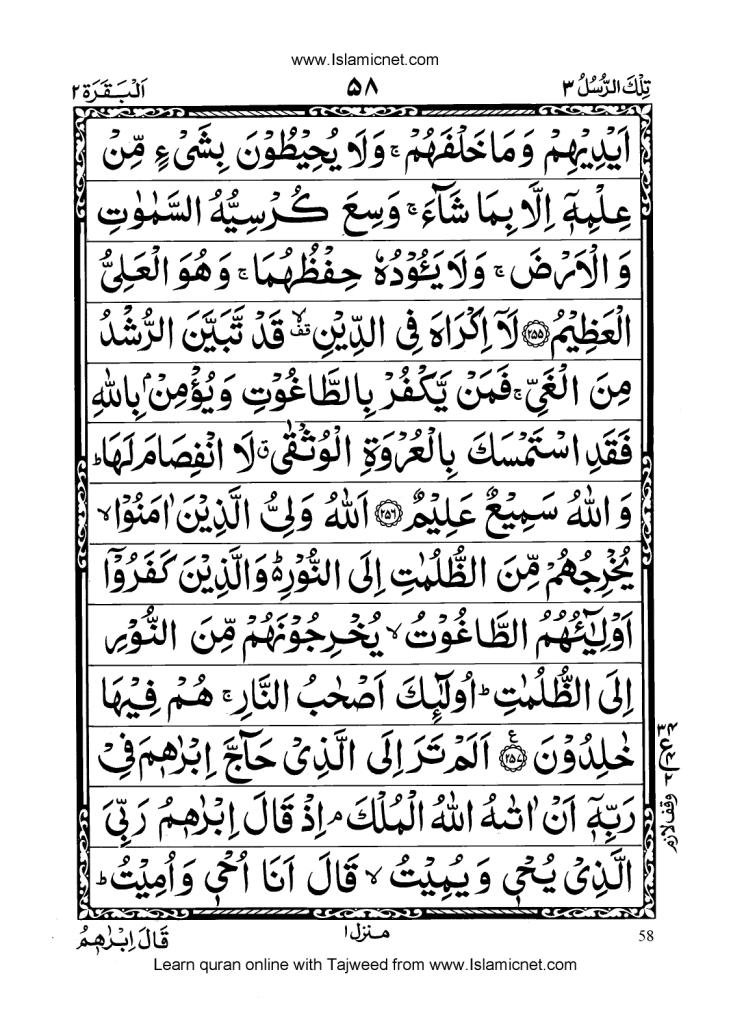 www.Islamicnet.com
تِلْكَ الرُّسُلُ ٣
۵۸
اَلْبَقَرَة ٢
اَيْدِيْهِمْ وَمَا خَلْفَهُمْ ۚ وَلَا يُحِيْطُوْنَ بِشَىْءٍ مِّنْ
عِلْمِهٖٓ اِلَّا بِمَا شَآءَ ۚ وَسِعَ كُرْسِيُّهُ السَّمٰوٰتِ
وَالْاَرْضَ ۚ وَلَا يَـُٔوْدُهٗ حِفْظُهُمَا ۚ وَهُوَ الْعَلِىُّ
الْعَظِيْمُ ﴿۲۵۵﴾ لَآ اِكْرَاهَ فِى الدِّيْنِ ۙقف قَدْ تَّبَيَّنَ الرُّشْدُ
مِنَ الْغَىِّ ۚ فَمَنْ يَّكْفُرْ بِالطَّاغُوْتِ وَيُؤْمِنْۢ بِاللّٰهِ
فَقَدِ اسْتَمْسَكَ بِالْعُرْوَةِ الْوُثْقٰى ق لَا انْفِصَامَ لَهَا ؕ
وَاللّٰهُ سَمِيْعٌ عَلِيْمٌ ﴿۲۵۶﴾ اَللّٰهُ وَلِىُّ الَّذِيْنَ اٰمَنُوْا ۙ
يُخْرِجُهُمْ مِّنَ الظُّلُمٰتِ اِلَى النُّوْرِ ؕ وَالَّذِيْنَ كَفَرُوْٓا
اَوْلِيٰٓـُٔهُمُ الطَّاغُوْتُ ۙ يُخْرِجُوْنَهُمْ مِّنَ النُّوْرِ
اِلَى الظُّلُمٰتِ ؕ اُولٰٓئِكَ اَصْحٰبُ النَّارِ ۚ هُمْ فِيْهَا
خٰلِدُوْنَ ﴿۲۵۷﴾ ع اَلَمْ تَرَ اِلَى الَّذِىْ حَآجَّ اِبْرٰهٖمَ فِىْ
رَبِّهٖٓ اَنْ اٰتٰىهُ اللّٰهُ الْمُلْكَ ۘ اِذْ قَالَ اِبْرٰهٖمُ رَبِّىَ
الَّذِىْ يُحْىٖ وَيُمِيْتُ ۙ قَالَ اَنَا اُحْىٖ وَاُمِيْتُ ؕ
وقف لازم
58
منزل ١
قَالَ اِبْرٰهٖمُ
Learn quran online with Tajweed from www.Islamicnet.com